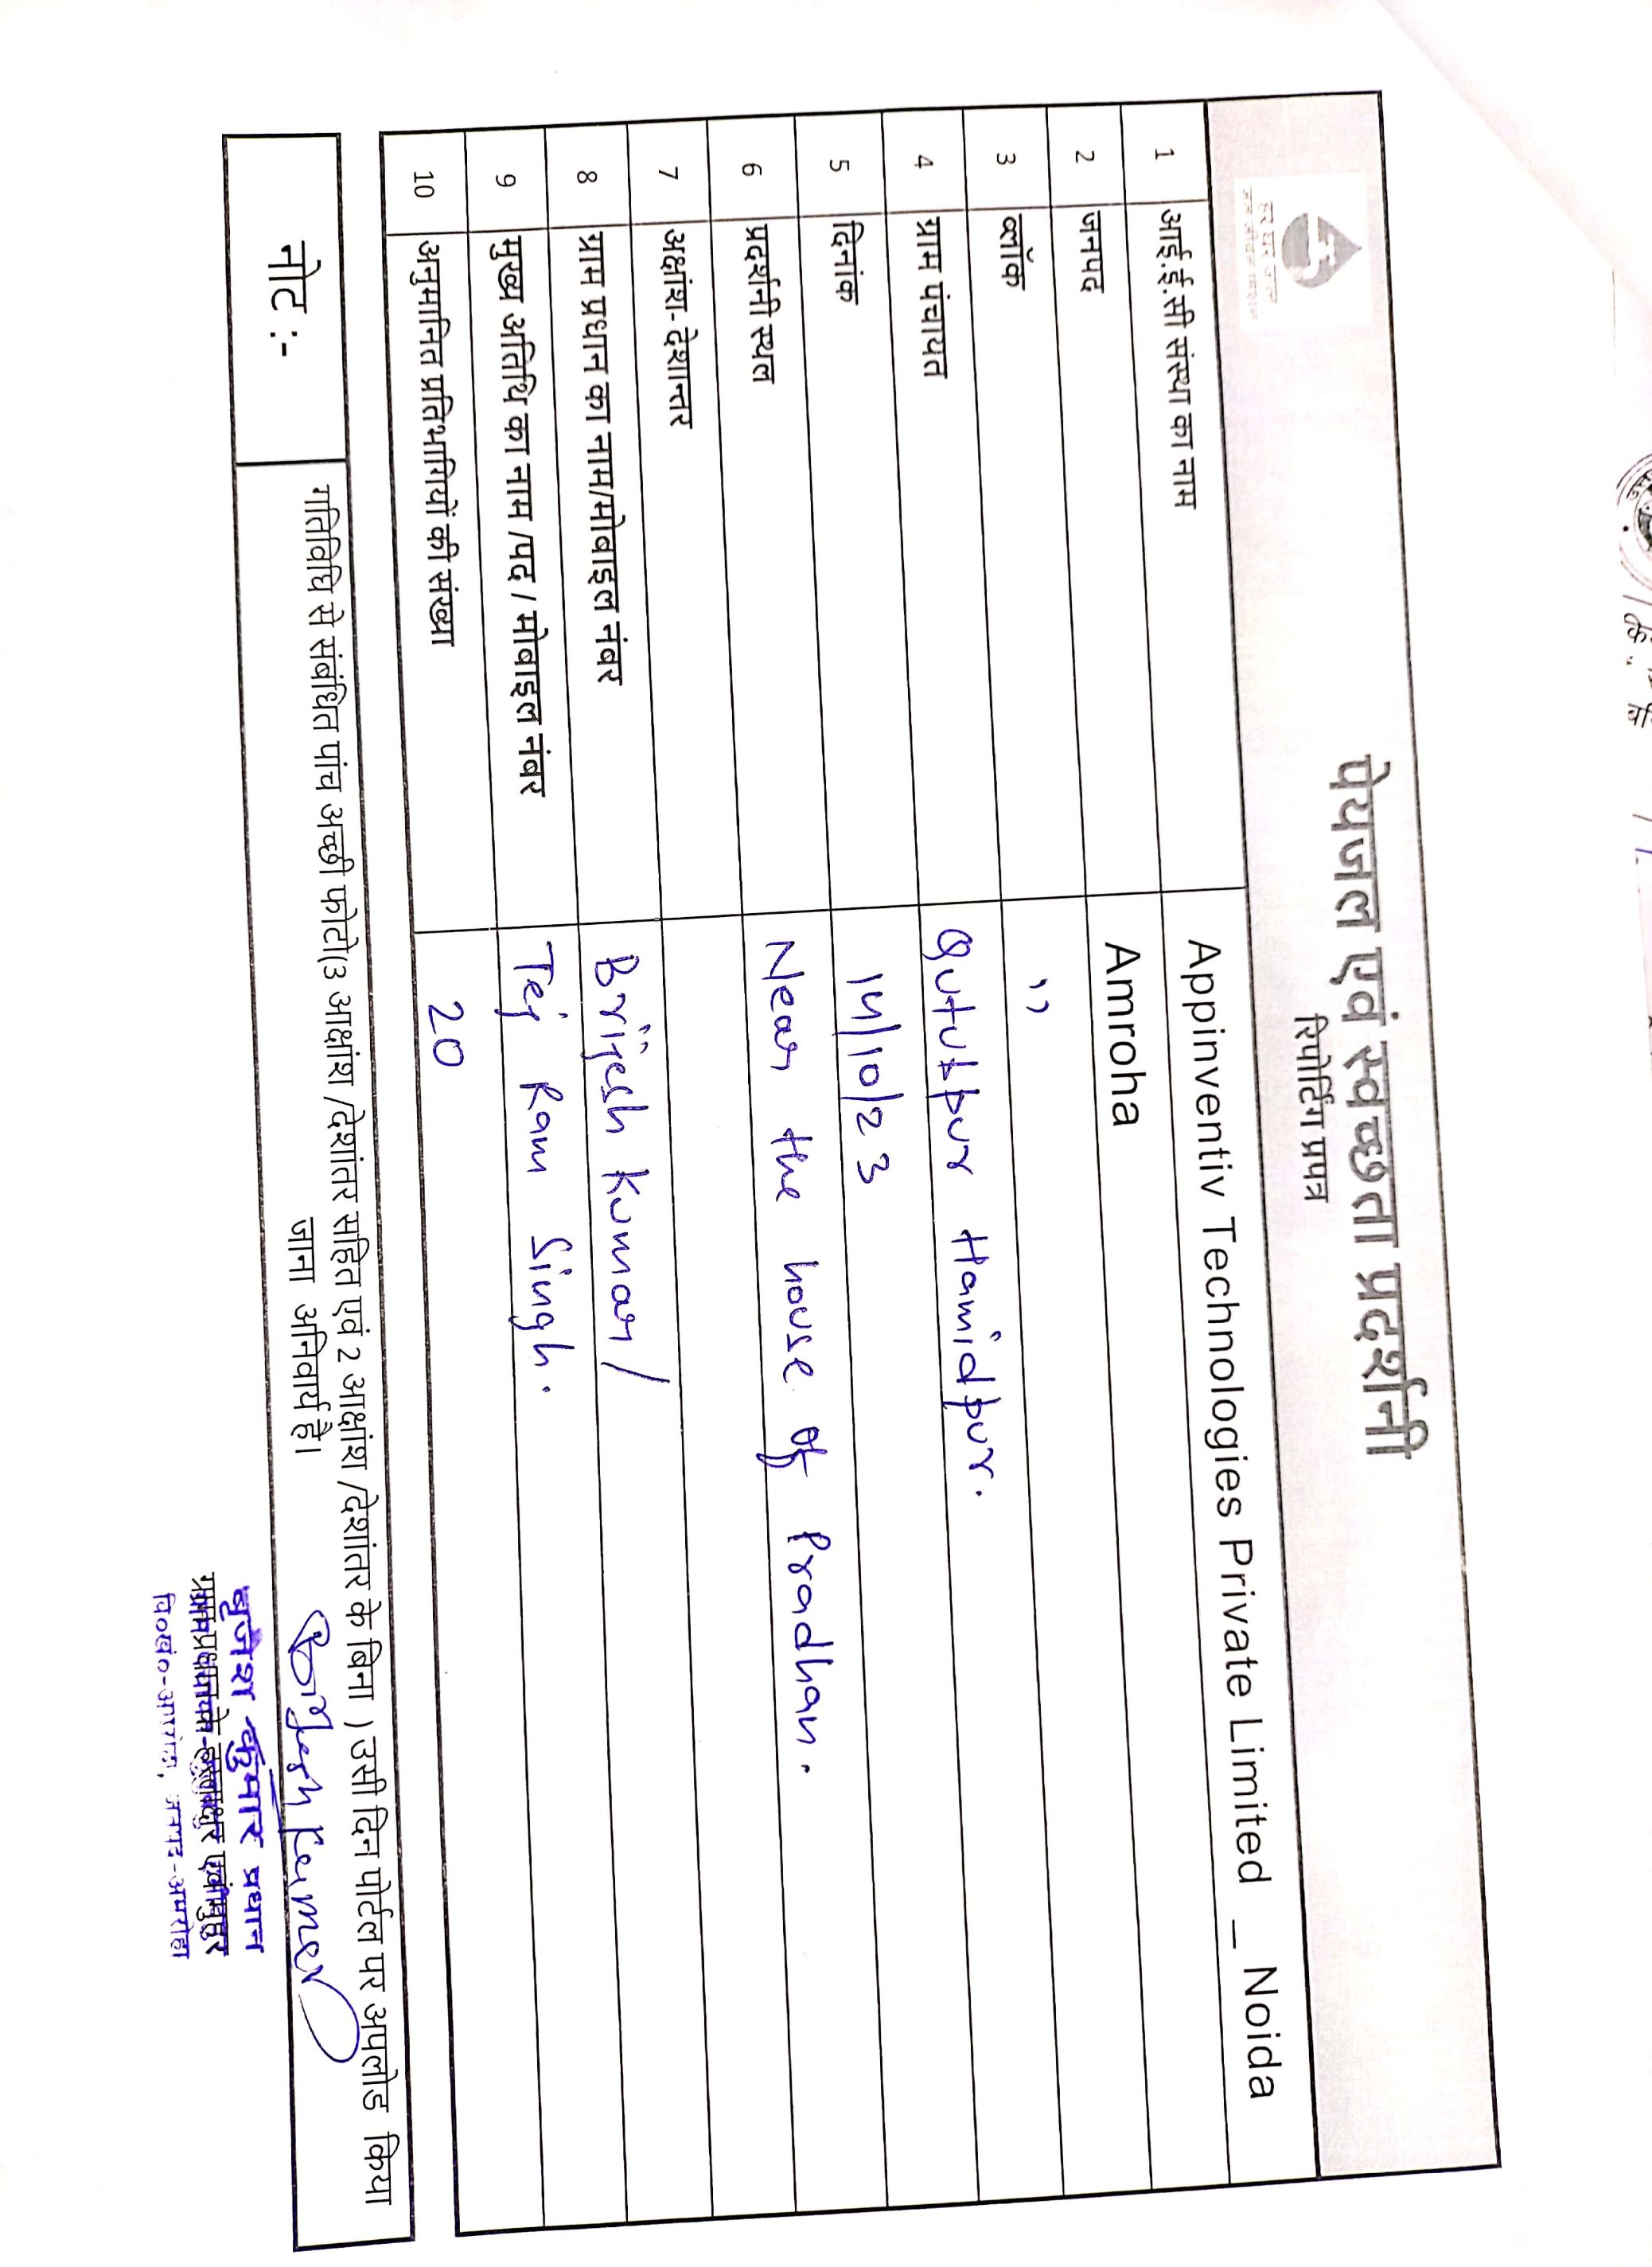 पेयजल एवं स्वच्छता प्रदर्शनी
रिपोर्टिंग प्रपत्र
हर घर जल
जल जीवन मिशन
1 आई.ई.सी संस्था का नाम Appinventiv Technologies Private Limited _ Noida
2 जनपद Amroha
3 ब्लॉक ,,
4 ग्राम पंचायत Qutubpur Hamidpur.
5 दिनांक 14/10/23
6 प्रदर्शनी स्थल Near the house of Pradhan.
7 अक्षांश-देशान्तर
8 ग्राम प्रधान का नाम/मोबाइल नंबर Brijesh Kumar/
9 मुख्य अतिथि का नाम /पद / मोबाइल नंबर Tej Ram Singh.
10 अनुमानित प्रतिभागियों की संख्या 20
नोट :- गतिविधि से संबंधित पांच अच्छी फोटो(3 आक्षांश /देशांतर सहित एवं 2 आक्षांश /देशांतर के बिना ) उसी दिन पोर्टल पर अपलोड किया
जाना अनिवार्य है।
Brijesh Kumar
बृजेश कुमार प्रधान
ग्राम प्रधान के हस्ताक्षर एवं मुहर
वि०खं०-अमरोहा, जनपद-अमरोहा